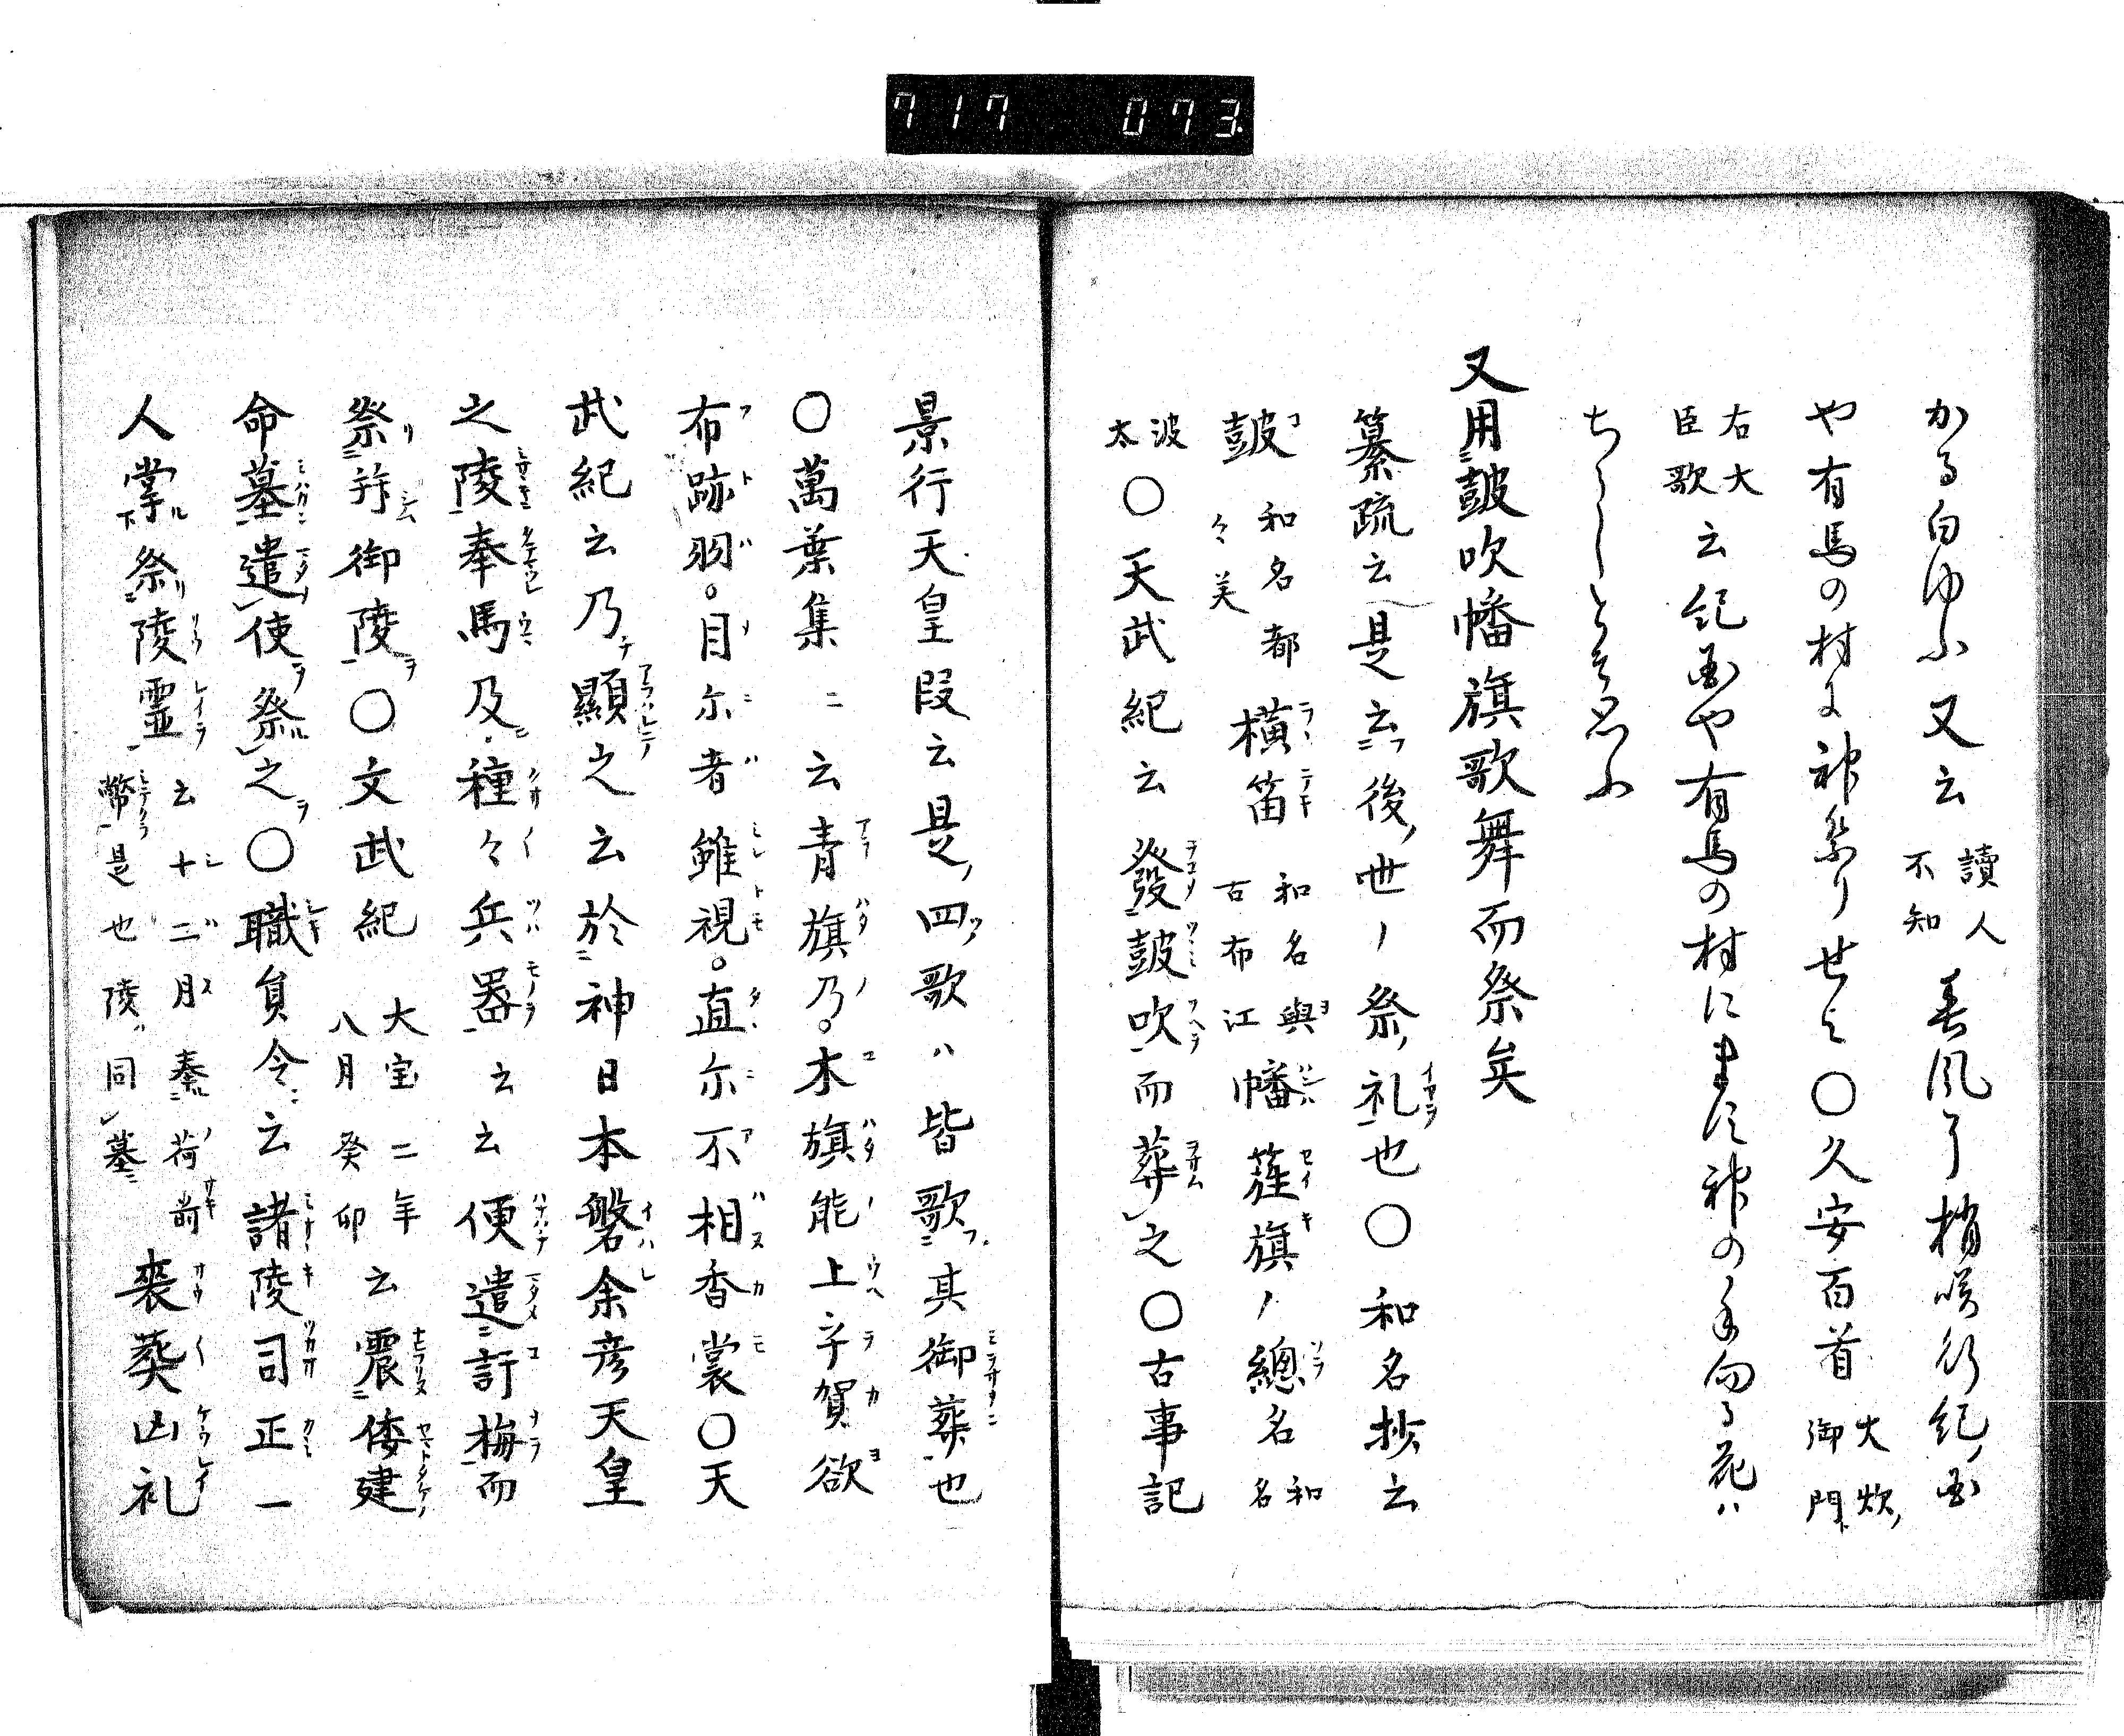 717 073
かる白ゆふ又云 讀人不知 春風了梢咲行紀ノ国
や有馬の村に神祭りせよ〇久安百首 大炊ノ御門
右大臣歌 云紀国や有馬の村にます神の手向る花ハ
ちらしとそ思ふ
又用皷吹幡旗歌舞而祭矣
纂疏云是云後ノ世ノ祭ノ礼也〇和名抄云
皷 和名都々美 横笛 和名與古布江 幡 旌旗ノ總名 和名
波太 〇天武紀云發皷吹而葬之〇古事記
景行天皇段云是ノ四歌ハ皆歌其御葬也
〇萬葉集ニ云青旗乃。木旗能上乎賀欲
布跡羽。目尓者雖視。直尓不相香裳〇天
武紀云乃顯之云於神日本磐余彦天皇
之陵奉馬及種々兵器云云便遣許梅而
祭拜御陵〇文武紀 大宝二年八月癸卯 云震倭建
命墓遣使祭之〇職員令云諸陵司正一
人掌祭陵霊 云十二月奉荷前幣是也陵ハ同墓 喪葬凶礼